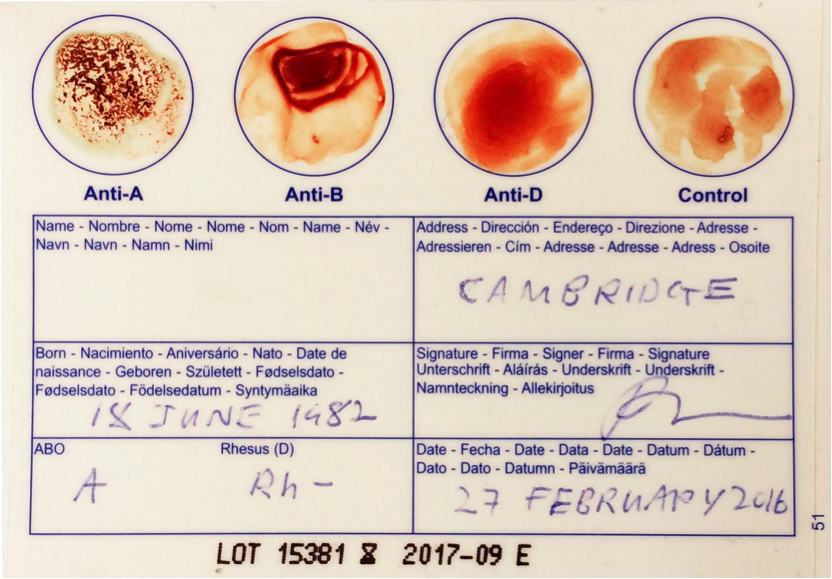 Anti-A Anti-B Anti-D Control
Name - Nombre - Nome - Nome - Nom - Name - Név -
Navn - Navn - Namn - Nimi
Address - Dirección - Endereço - Direzione - Adresse -
Adressieren - Cím - Adresse - Adresse - Adress - Osoite
CAMBRIDGE
Born - Nacimiento - Aniversário - Nato - Date de
naissance - Geboren - Született - Fødselsdato -
Fødselsdato - Födelsedatum - Syntymäaika
18 JUNE 1982
Signature - Firma - Signer - Firma - Signature
Unterschrift - Aláírás - Underskrift - Underskrift -
Namnteckning - Allekirjoitus
ABO Rhesus (D)
A Rh -
Date - Fecha - Date - Data - Date - Datum - Dátum -
Dato - Dato - Datumn - Päivämäärä
27 FEBRUARY 2016
51
LOT 15381 2017-09 E